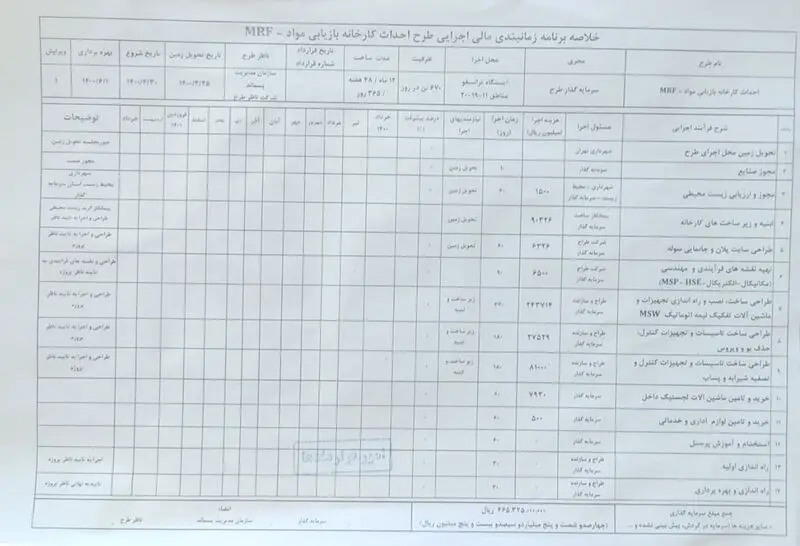 خلاصه برنامه زمانبندی مالی اجرایی طرح احداث کارخانه بازیابی مواد - MRF
نام طرح
مجری
محل اجرا
ظرفیت
مدت ساخت
تاریخ قرارداد
شماره قرارداد
ناظر طرح
تاریخ تحویل زمین
تاریخ شروع
بهره برداری
ویرایش
احداث کارخانه بازیابی مواد - MRF
سرمایه گذار طرح
ایستگاه ترانسفو
مناطق ۱۱-۱۹-۲۰
۶۷۰ تن در روز
۱۲ ماه / ۴۸ هفته
/ ۳۶۵ روز
سازمان مدیریت
پسماند
شرکت ناظر طرح
۱۴۰۰/۳/۲۵
۱۴۰۰/۳/۳۰
۱۴۰۰/۶/۱
۱
ردیف
شرح فرآیند اجرایی
مسئول اجرا
هزینه اجرا
(میلیون ریال)
زمان اجرا
(روز)
نیازمندیهای
اجرا
درصد پیشرفت
(٪)
خرداد
۱۴۰۰
تیر
مرداد
شهریور
مهر
آبان
آذر
دی
بهمن
اسفند
فروردین
۱۴۰۱
اردیبهشت
خرداد
توضیحات
۱
تحویل زمین محل اجرای طرح
شهرداری تهران
صورتجلسه تحویل زمین
۲
مجوز صنایع
سرمایه گذار
تحویل زمین
مجوز صمت
۳
مجوز و ارزیابی زیست محیطی
شهرداری - محیط
زیست - سرمایه گذار
۱۵۰۰
۶۰
تحویل زمین
شهرداری
محیط زیست استان سرمایه
گذار
۴
ابنیه و زیر ساخت های کارخانه
پیمانکار ساخت
سرمایه گذار
۹۰۳۲۶
تحویل زمین
طراحی و اجرا به تایید ناظر
۵
طراحی سایت پلان و جانمایی سوله
شرکت طراح
سرمایه گذار
۶۳۲۶
۶۰
تحویل زمین
طراحی و اجرا به تایید ناظر
پروژه
۶
تهیه نقشه های فرآیندی و مهندسی
(مکانیکال-الکتریکال-MSP - HSE)
شرکت طراح
سرمایه گذار
۶۵۰۰
۹۰
طراحی و نقشه های فرآیندی به
تایید ناظر پروژه
۷
طراحی ساخت، نصب و راه اندازی تجهیزات و
ماشین آلات تفکیک نیمه اتوماتیک MSW
طراح و سازنده
سرمایه گذار
۲۴۳۷۱۴
زیر ساخت و
ابنیه
طراحی و اجرا به تایید ناظر
پروژه
۸
طراحی ساخت تاسیسات و تجهیزات کنترل،
حذف بو و ویروس
طراح و سازنده
سرمایه گذار
۲۷۵۲۹
۱۸۰
زیر ساخت و
ابنیه
طراحی و اجرا به تایید ناظر
پروژه
۹
طراحی ساخت تاسیسات و تجهیزات کنترل و
تصفیه شیرابه و پساب
طراح و سازنده
سرمایه گذار
۸۱۰۰۰
۱۸۰
زیر ساخت و
ابنیه
طراحی و اجرا به تایید ناظر
پروژه
۱۰
خرید و تامین ماشین آلات لجستیک داخل
سرمایه گذار
۷۹۳۰
۶۰
۱۱
خرید و تامین لوازم اداری و خدماتی
سرمایه گذار
۵۰۰
۶۰
۱۲
استخدام و آموزش پرسنل
سرمایه گذار
۶۰
۱۳
راه اندازی اولیه
طراح و سازنده
سرمایه گذار
۳۰
اجرا به تایید ناظر پروژه
۱۴
راه اندازی و بهره برداری
طراح و سازنده
سرمایه گذار
۳۰
تایید نهایی ناظر پروژه
امور قراردادها
جمع مبلغ سرمایه گذاری
۴۶۵،۳۲۵،۰۰۰،۰۰۰ ریال
(چهارصدو شصت و پنج میلیاردو سیصدو بیست و پنج میلیون ریال)
امضاء
سرمایه گذار
سازمان مدیریت پسماند
ناظر طرح